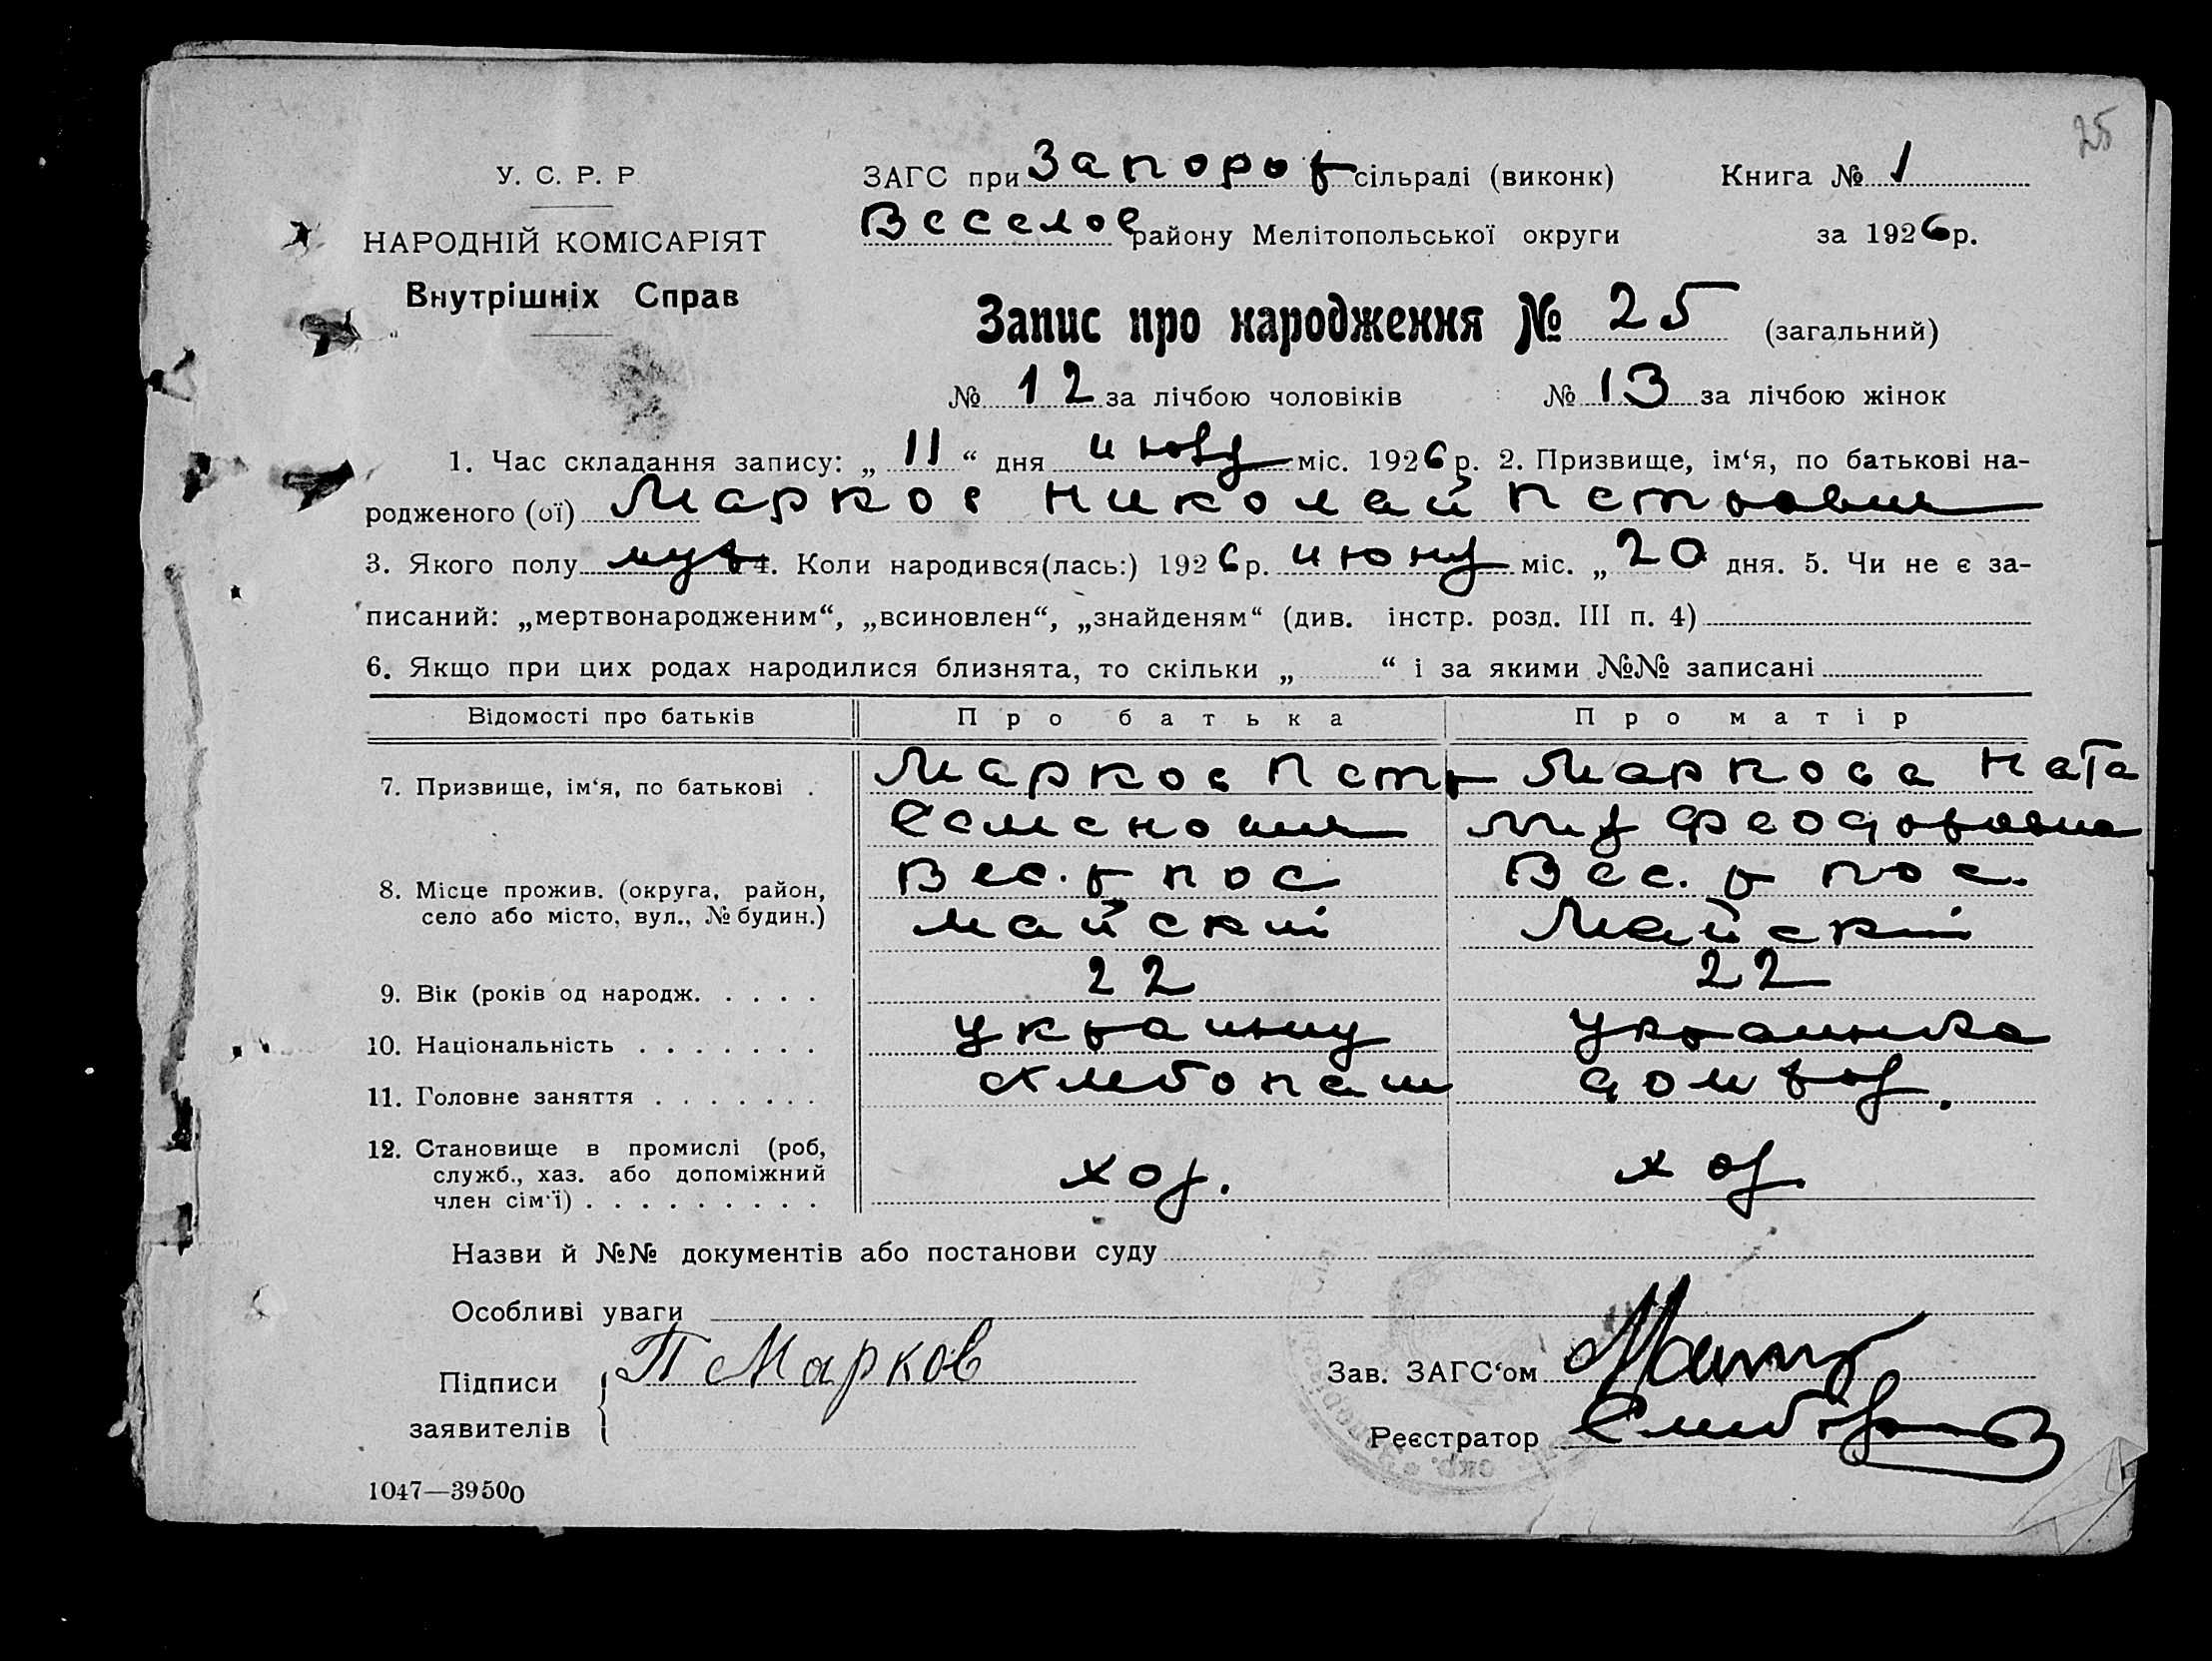 25
У. С. Р. Р
НАРОДНІЙ КОМІСАРІЯТ
Внутрішніх Справ
ЗАГС при Запорож сільраді (виконк)
Книга № 1
Веселов району Мелітопольської округи
за 1926 р.
Запис про народження № 25 (загальний)
№ 12 за лічбою чоловіків № 13 за лічбою жінок
1. Час складання запису: „ 11 “ дня міс. 1926 р. 2. Призвище, ім‘я, по батькові на-
родженого (ої) Марков Николай Петрович
3. Якого полу муж 4. Коли народився(лась:) 1926 р. июня міс. „ 20 дня. 5. Чи не є за-
писаний: „мертвонародженим“, „всиновлен“, „знайденям“ (див. інстр. розд. III п. 4)
6. Якщо при цих родах народилися близнята, то скільки „ “ і за якими №№ записані
Відомості про батьків Про батька Про матір
7. Призвище, ім‘я, по батькові . Марков Петр Маркова Ната
Семенович лия Феодоровна
8. Місце прожив. (округа, район, Вес. р пос Вес. р пос.
село або місто, вул., № будин.) Майский Майский
9. Вік (років од народж. . . . . 22 22
10. Національність . . . . . . . украинец Украинка
11. Головне заняття . . . . . . . хлебопаш домхоз.
12. Становище в промислі (роб,
служб., хаз. або допоміжний хоз. хоз
член сім‘ї) . . . . . . . . .
Назви й №№ документів або постанови суду
Особливі уваги
Підписи П Марков
заявителів
Зав. ЗАГС‘ом
Реєстратор
1047—39500